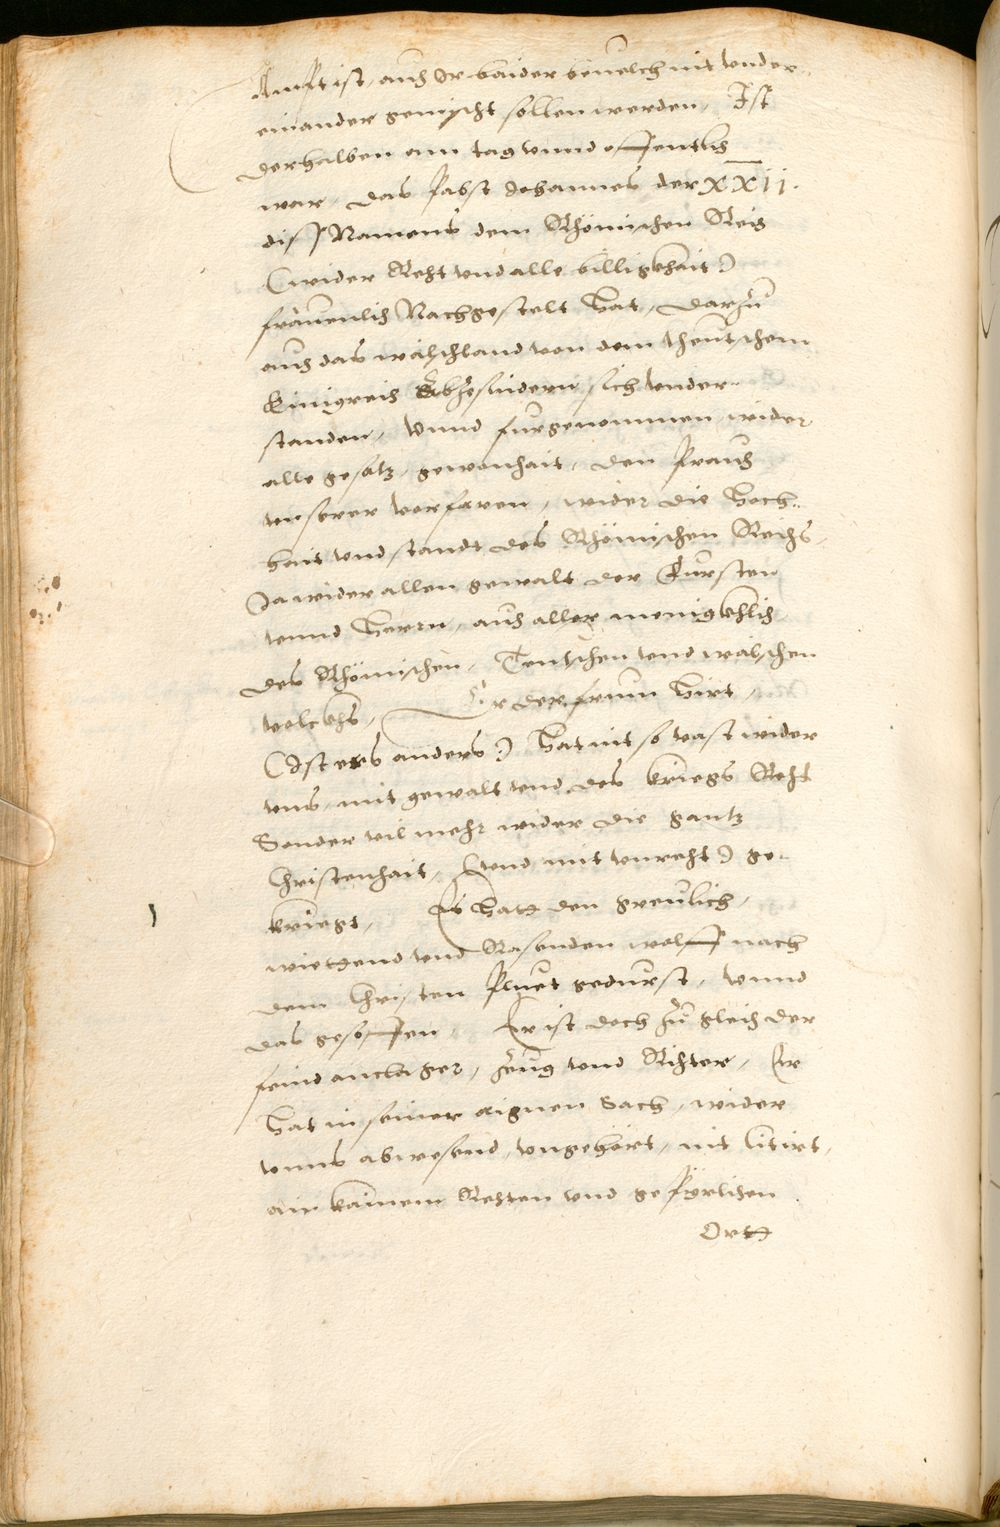 Ampt ist, auch Ir baider beuelch nit vnder„
einander gemischt sollen werden, Ist
derhalben am tag vnnd offentlich
war, das Pabst Johannes der XXII.
diß Namens dem Rhömischen Reich
(wider Recht vnd alle billigkhait)
fräuenlich Nachgestelt Hat, darzů
auch das wälschland von dem theutschem
künigreich Abzesündern sich vnder„
standen, Vnnd furgenommen, wider
alle gesatz, gewonhait, den prauch
vnserer vorfaren, wider die Hoch„
hait vnd standt des Rhömischen Reichs,
Ja wider allen gewalt der Fursten
vnnd Herrn, auch aller menigkhlich
des Rhömischen, Teutschen vnd wälschen
volckhs, Er der frum Hirt,
(Ist ers anders) Hat nit so vast wider
vns, mit gewalt vnd des kriegs Recht
Sonder vil mehr wider die gantz
Christenhait, (vnd mit vnrecht) ge„
kriegt, Es Hatt den greulich,
wiettend vnd Rasenden wolff nach
dem Christen pluet gedurst, vnnd
das gesoffen, Er ist doch zů gleich der
feind anclager, zeug vnd Richter, Er
Hat in seiner aignen Sach, wider
vnns abwesend, vngehört, nit Citirt,
an kainem Rechten vnd geferlichen
Ortt